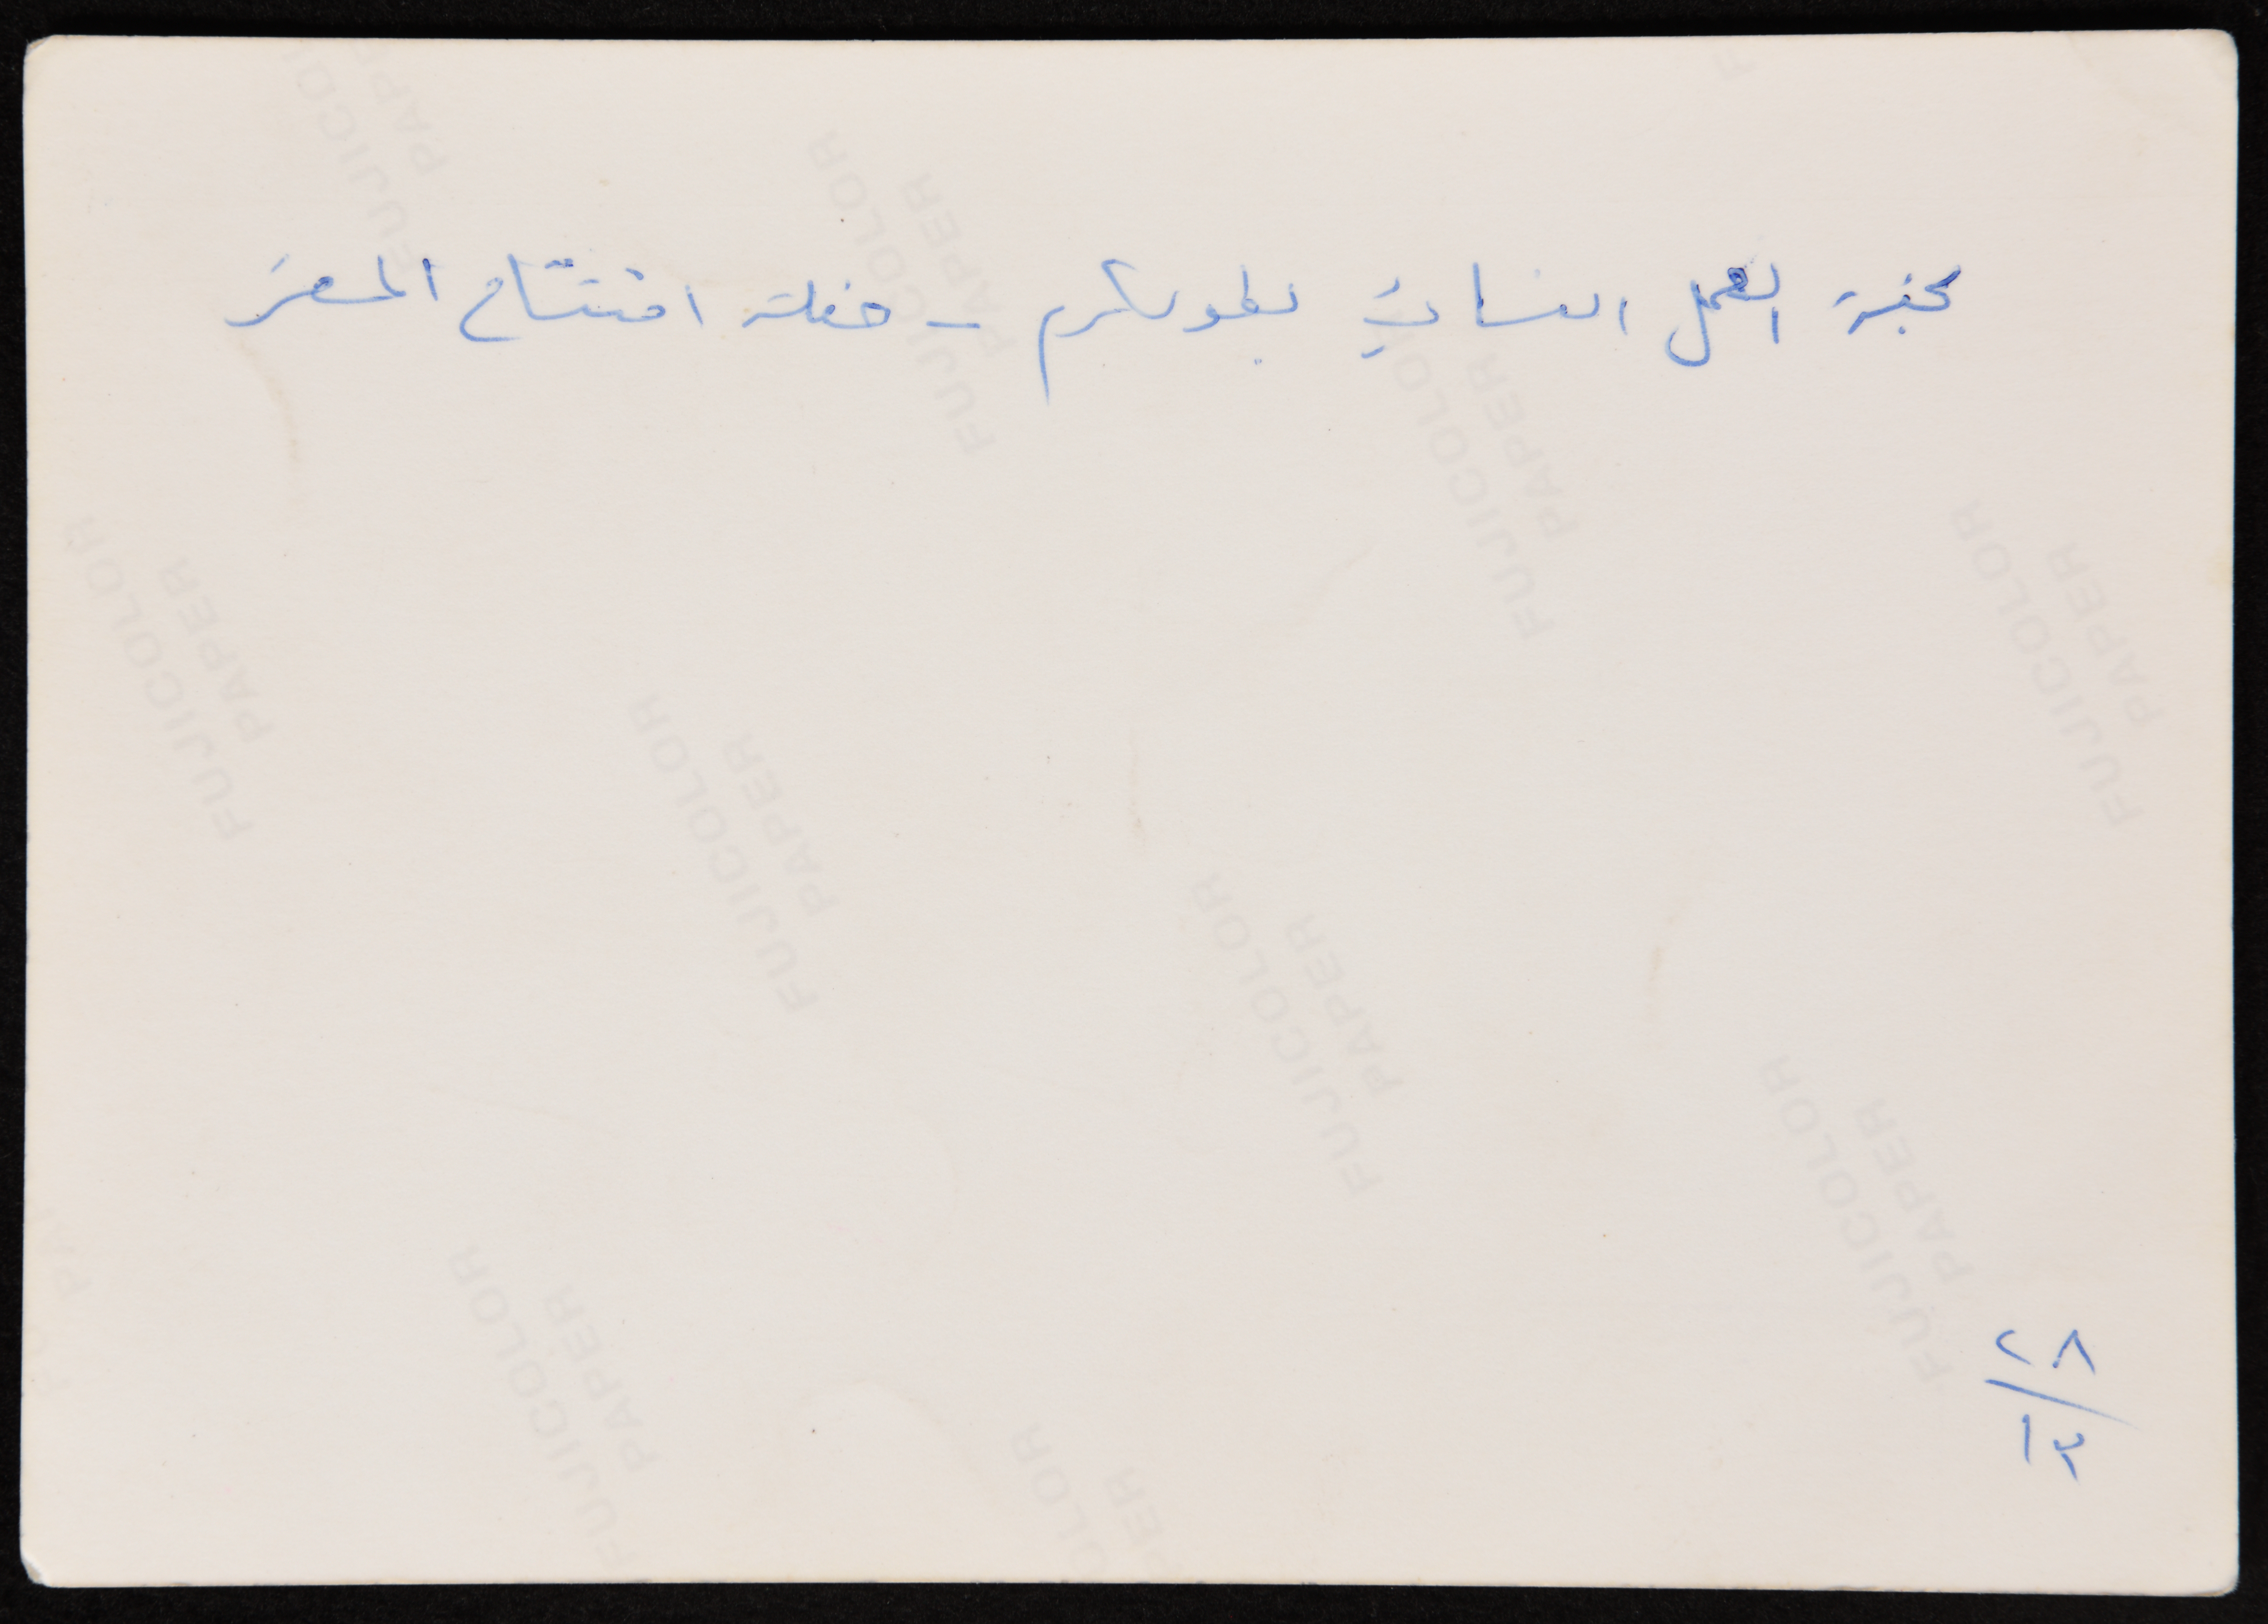 لجنة العمل النسائي بطولكرم - حفلة افتتاح المقر
٢٨
١٢
FUJICOLOR PAPER
FUJICOLOR PAPER
FUJICOLOR PAPER
FUJICOLOR PAPER
FUJICOLOR PAPER
FUJICOLOR PAPER
FUJICOLOR PAPER
FUJICOLOR PAPER
FUJICOLOR PAPER